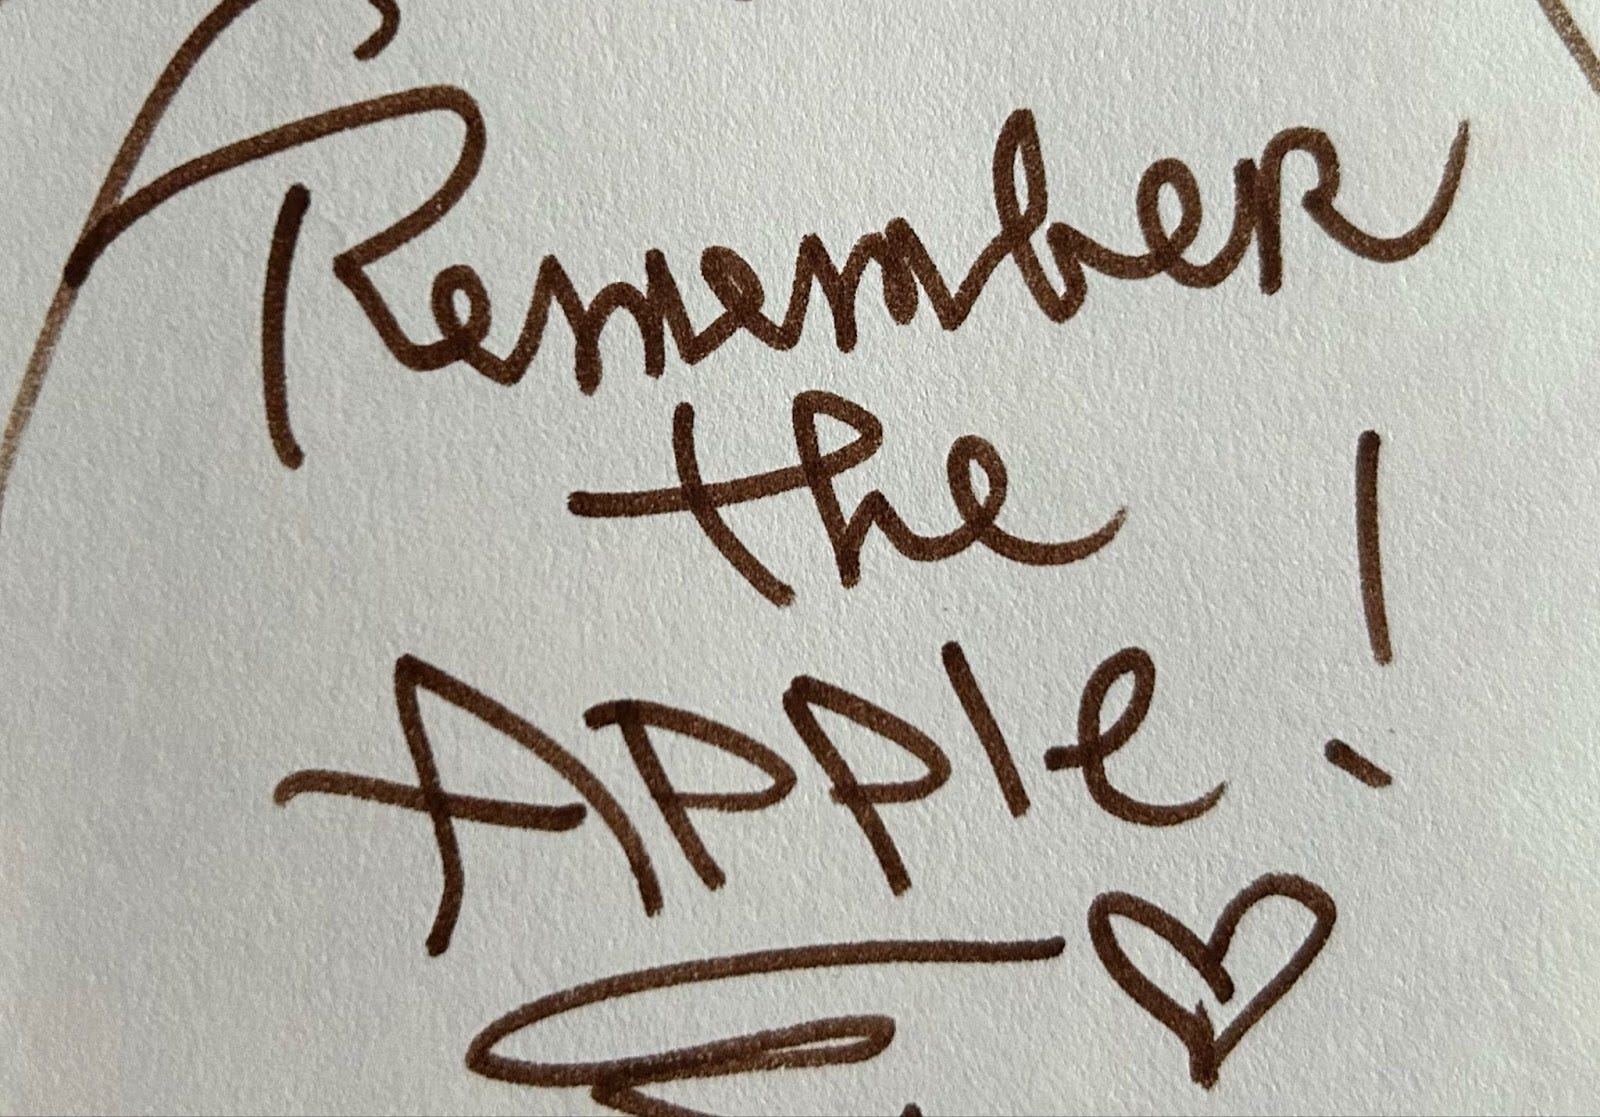 Remember
the
Apple!